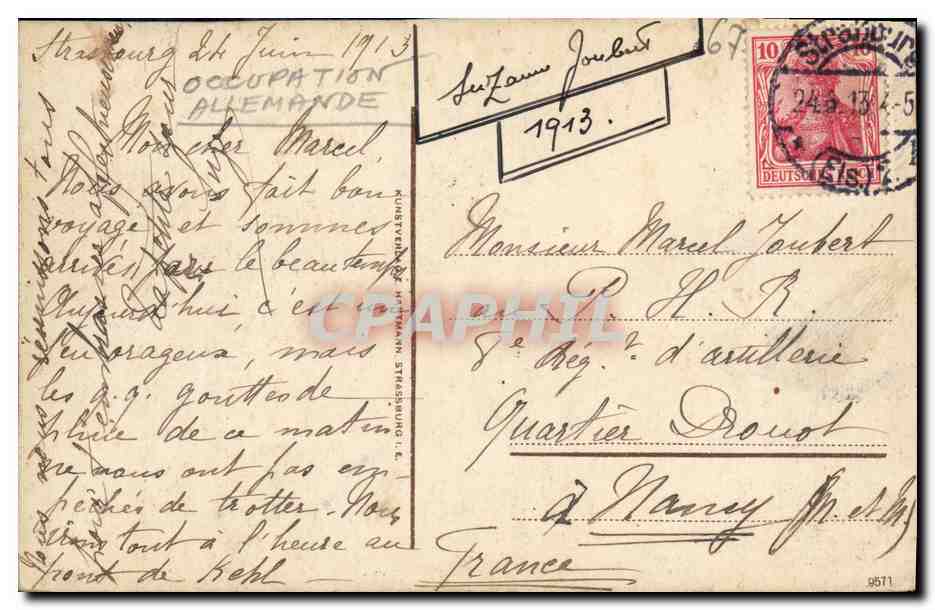 Strasbourg 24 Juin 1913
OCCUPATION
ALLEMANDE
Mon cher Marcel,
Nous avons fait bon
voyage et sommes
arrivés par le beau temps.
Aujourd'hui c'est un
peu orageux, mais
les q.q. gouttes de
pluie de ce matin
ne nous ont pas em-
pêchés de trotter. Nous
irons tout à l'heure au
pont de Kehl
Nous nous réunissons tous
pour t'embrasser affectueusement
KUNSTVERLAG HARTMANN STRASSBURG I. E.
Suzanne Joubert
1913.
67
10
10
DEUTSCHES
Strassburg
24.6.13
(Els)
Monsieur Marcel Joubert
au P. H. R.
8e Régt d'artillerie
Quartier Drouot
à Nancy (M. et M)
France
9571
CPAPHIL